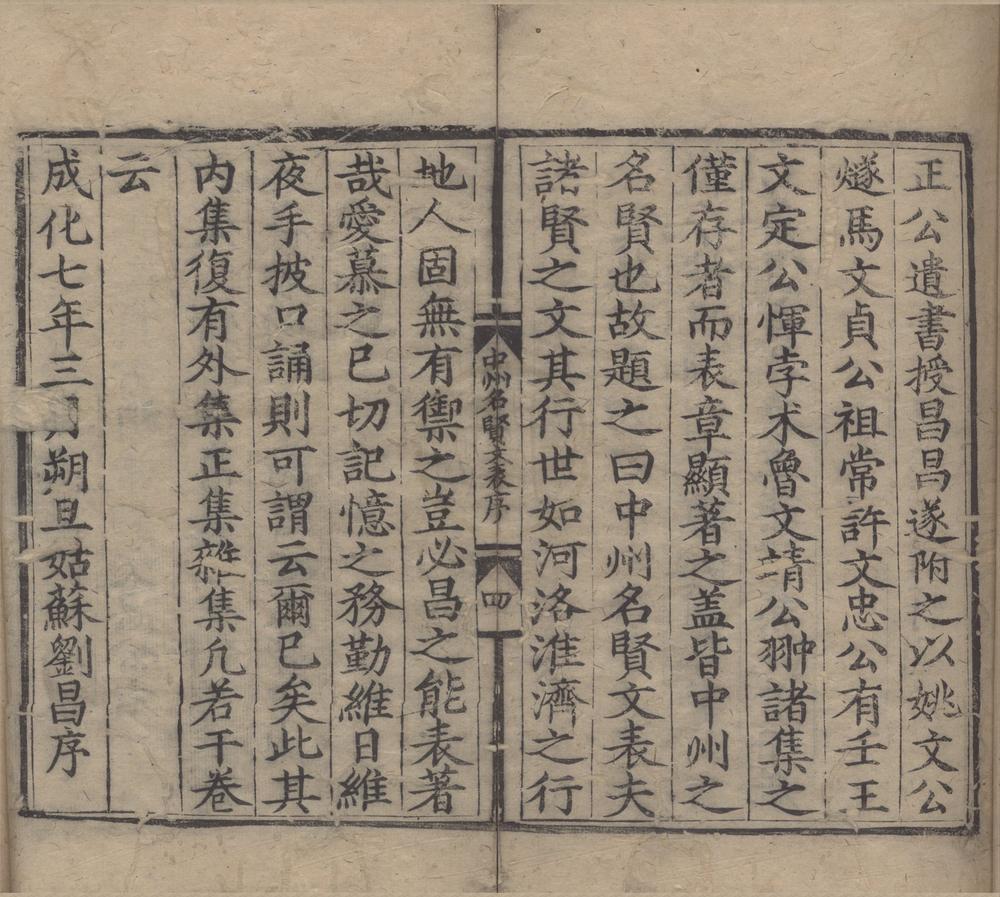 正公遺書授昌昌遂附之以姚文公
燧馬文貞公祖常許文忠公有壬王
文定公惲孛术魯文靖公翀諸集之
僅存者而表章顯著之盖皆中州之
名賢也故題之曰中州名賢文表夫
諸賢之文其行世如河洛淮濟之行
中州名賢文表序
四
地人固無有禦之豈必昌之能表著
哉愛慕之已切記憶之務勤維日維
夜手披口誦則可謂云爾已矣此其
内集復有外集正集雜集凡若干卷
云
成化七年三月朔旦姑蘇劉昌序